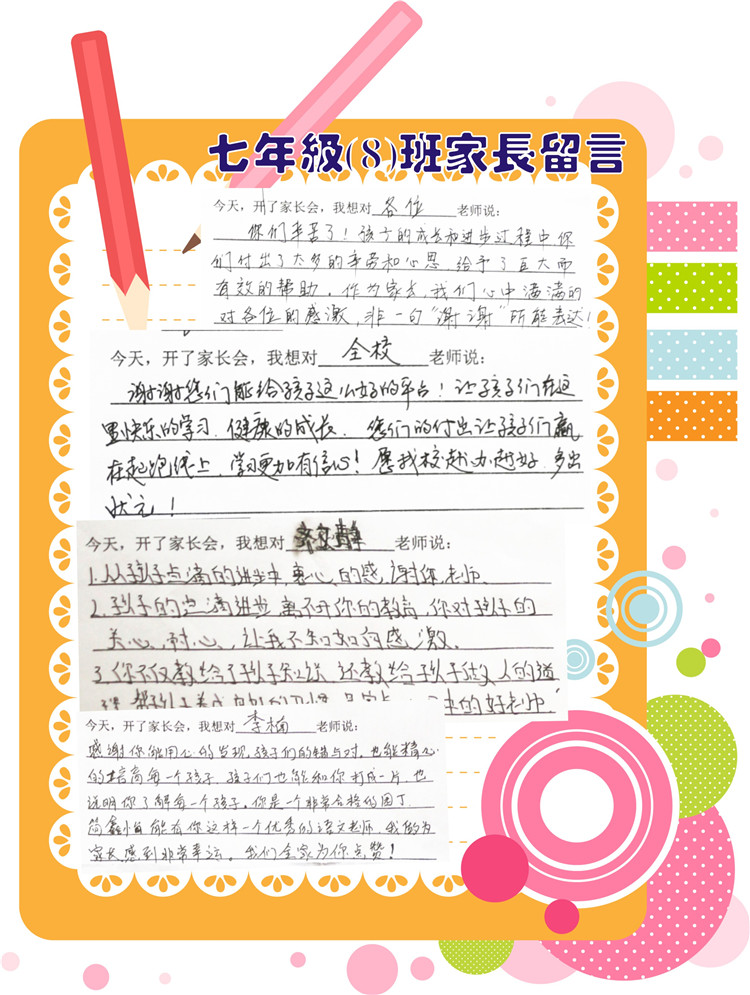 七年級(8)班家長留言
今天，开了家长会，我想对 各位 老师说：
你们辛苦了！孩子的成长和进步过程中你
们付出了太多的辛劳和心思，给予了巨大而
有效的帮助，作为家长，我们心中满满的
对各位的感激，非一句“谢谢”所能表达！
今天，开了家长会，我想对 全校 老师说：
谢谢您们能给孩子这么好的平台！让孩子们在这
里快乐的学习，健康的成长，您们的付出让孩子们赢
在起跑线上，学习更加有信心！愿我校越办越好，多出
状元！
今天，开了家长会，我想对 老师说：
1.从孩子点滴的进步中，衷心的感谢你，老师.
2.孩子的点滴进步，离不开你的教育，你对孩子的
关心、耐心，让我不知如何感激.
3.你不仅教给了孩子知识，还教给孩子做人的道
的好老师.
今天，开了家长会，我想对 李楠 老师说：
感谢你能用心的发现，孩子们的错与对，也能精心
的培育每一个孩子，孩子们也能和你打成一片，也
说明你了解每一个孩子，你是一个非常合格的园丁，
能有你这样一个优秀的语文老师，我做为
家长感到非常幸运。我们全家为你点赞！